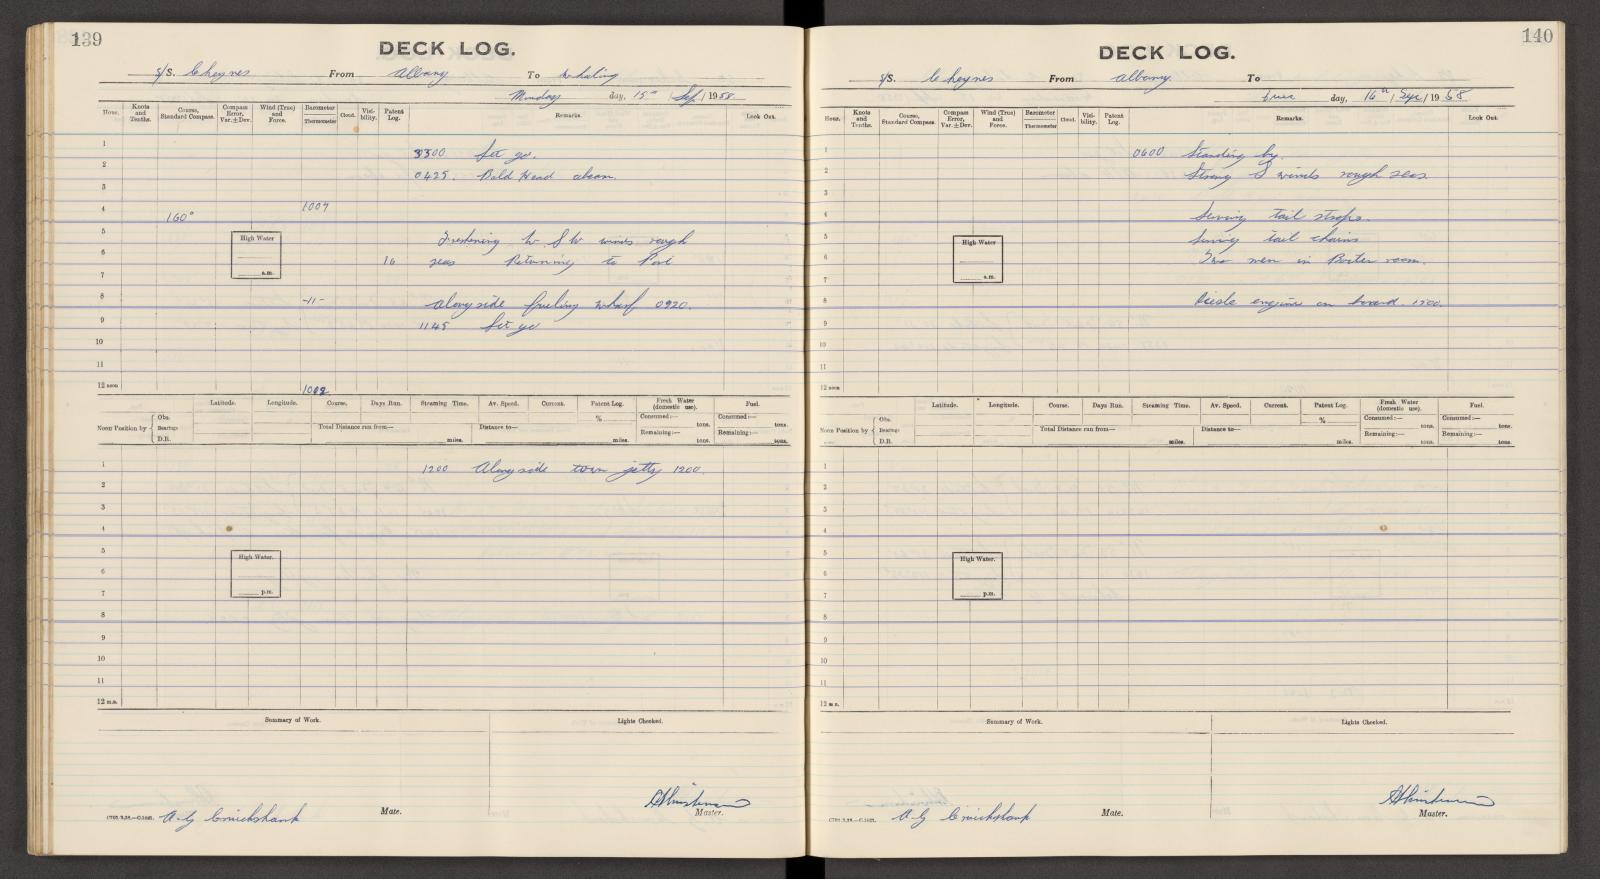 139
DECK LOG.
S/S. Cheynes From Albany To Whaling
Monday day, 15th / Sep / 1958
Hour. Knots and Tenths. Course, Standard Compass. Compass Error, Var.±Dev. Wind (True) and Force. Barometer Thermometer Cloud. Visibility. Patent Log. Remarks. Look Out.
1
3300 Let go.
2 0425. Bald Head abeam.
3
4 160° 1007
5 High Water Freshening W. SW winds rough
6 16 seas Returning to Port
7 a.m.
8 -11- Alongside fueling wharf 0920.
9 1145 Let go
10
11
12 noon 1002
Latitude. Longitude. Course. Days Run. Steaming Time. Av. Speed. Current. Patent Log. Fresh Water (domestic use). Fuel.
Noon Position by Obs. Bearings D.R. Total Distance run from— miles. Distance to— miles. % Consumed:— tons. Remaining:— tons. Consumed:— tons. Remaining:— tons.
1 1200 Alongside town jetty 1200.
2
3
4
5 High Water.
6
7 p.m.
8
9
10
11
12 m.n.
Summary of Work. Lights Checked.
A. G Cruickshank Mate. Master.
140
DECK LOG.
S/S. Cheynes From Albany To
Tues day, 16th / Sep / 1958
Hour. Knots and Tenths. Course, Standard Compass. Compass Error, Var.±Dev. Wind (True) and Force. Barometer Thermometer Cloud. Visibility. Patent Log. Remarks. Look Out.
1 0600 Standing by.
2 Strong S winds rough seas
3
4 Serving tail strops.
5 High Water Serving tail chains
6 Two men in Boiler room.
7 a.m.
8 Diesle engine on board. 1500.
9
10
11
12 noon
Latitude. Longitude. Course. Days Run. Steaming Time. Av. Speed. Current. Patent Log. Fresh Water (domestic use). Fuel.
Noon Position by Obs. Bearings D.R. Total Distance run from— miles. Distance to— miles. % Consumed:— tons. Remaining:— tons. Consumed:— tons. Remaining:— tons.
1
2
3
4
5 High Water.
6
7 p.m.
8
9
10
11
12 m.n.
Summary of Work. Lights Checked.
A. G Cruickshank Mate. Master.